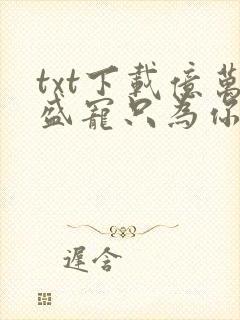 txt下載億萬
盛寵只為你
遲含